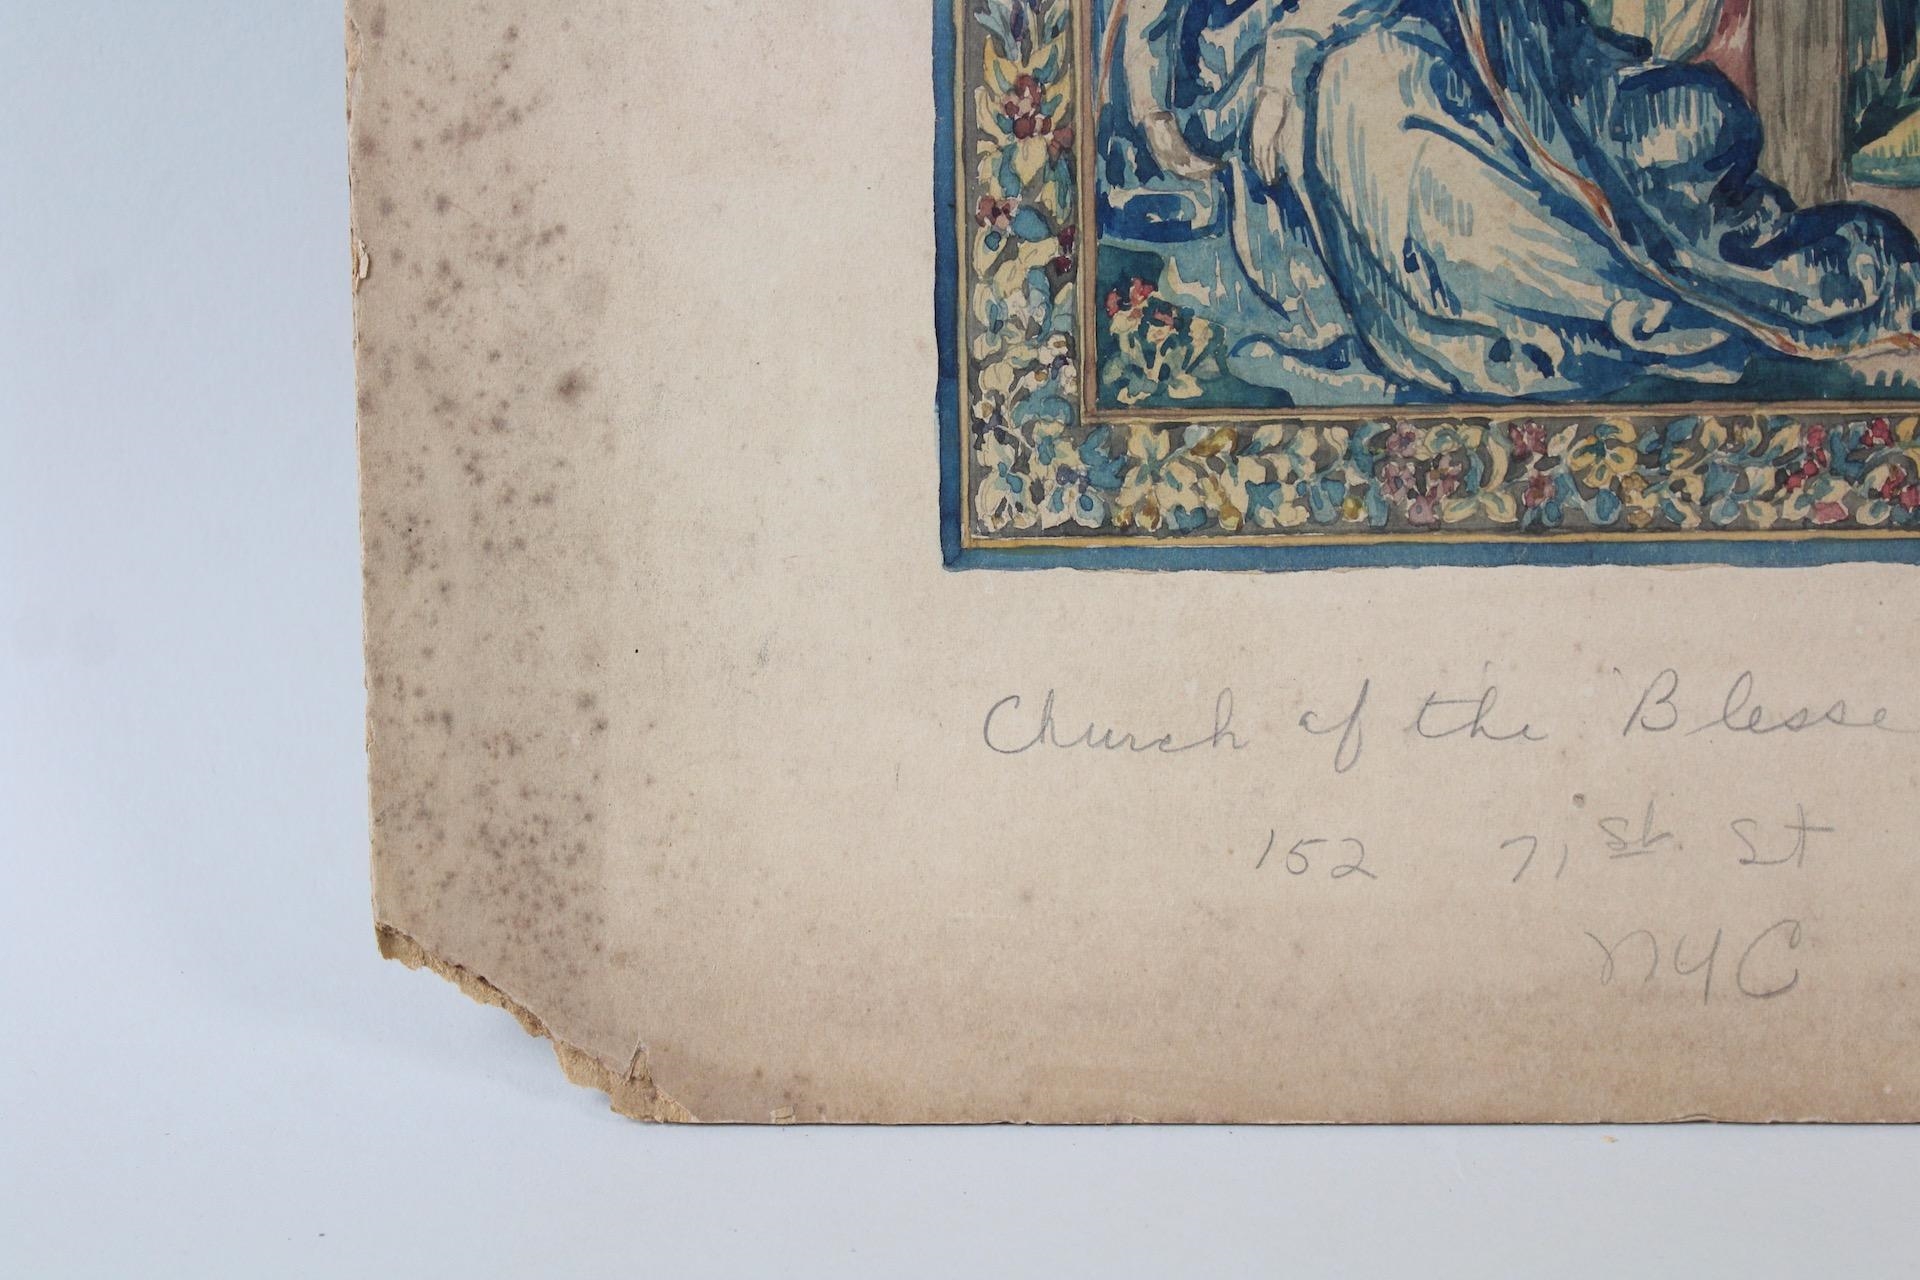 Church of the Blesse
152 71st St
NYC